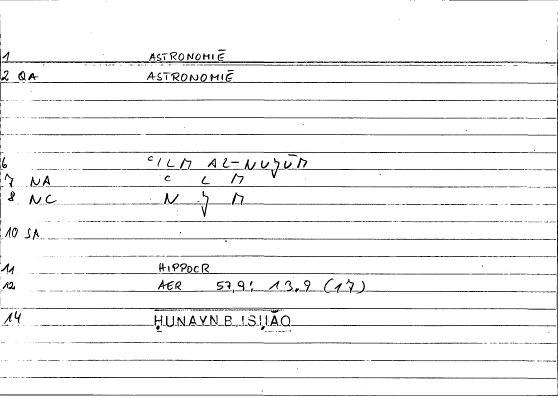 1 ASTRONOMIĒ
2 QA ASTRONOMIĒ
6 ʿILM AL-NUǧŪM
7 NA ʿ L M
8 NC N ǧ M
10 SA
11 HIPPOCR
12 AER 57,9: 13.9 (17)
14 ḤUNAYN B. ISḤĀQ